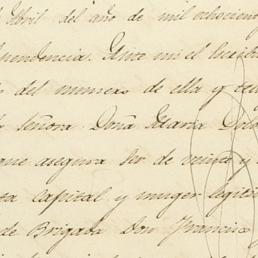 Abril del año de mil ochocien
pendencia. Ante mi el
del numero de ella y
Señora Doña Maria Dolo
que asegura ser de veinte y
ta capital y muger legiti
de Brigada Don Francisco